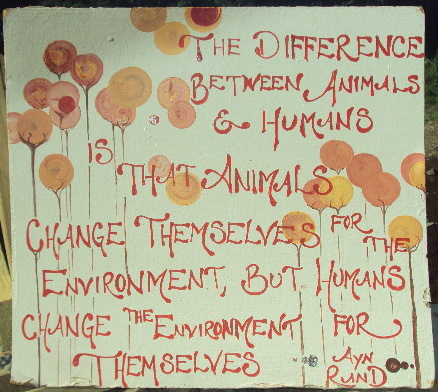 THE DIFFERENCE
BETWEEN ANIMALS
& HUMANS
IS
THAT ANIMALS
CHANGE THEMSELVES FOR THE
ENVIRONMENT, BUT HUMANS
CHANGE THE ENVIRONMENT FOR
THEMSELVES
AYN
RAND